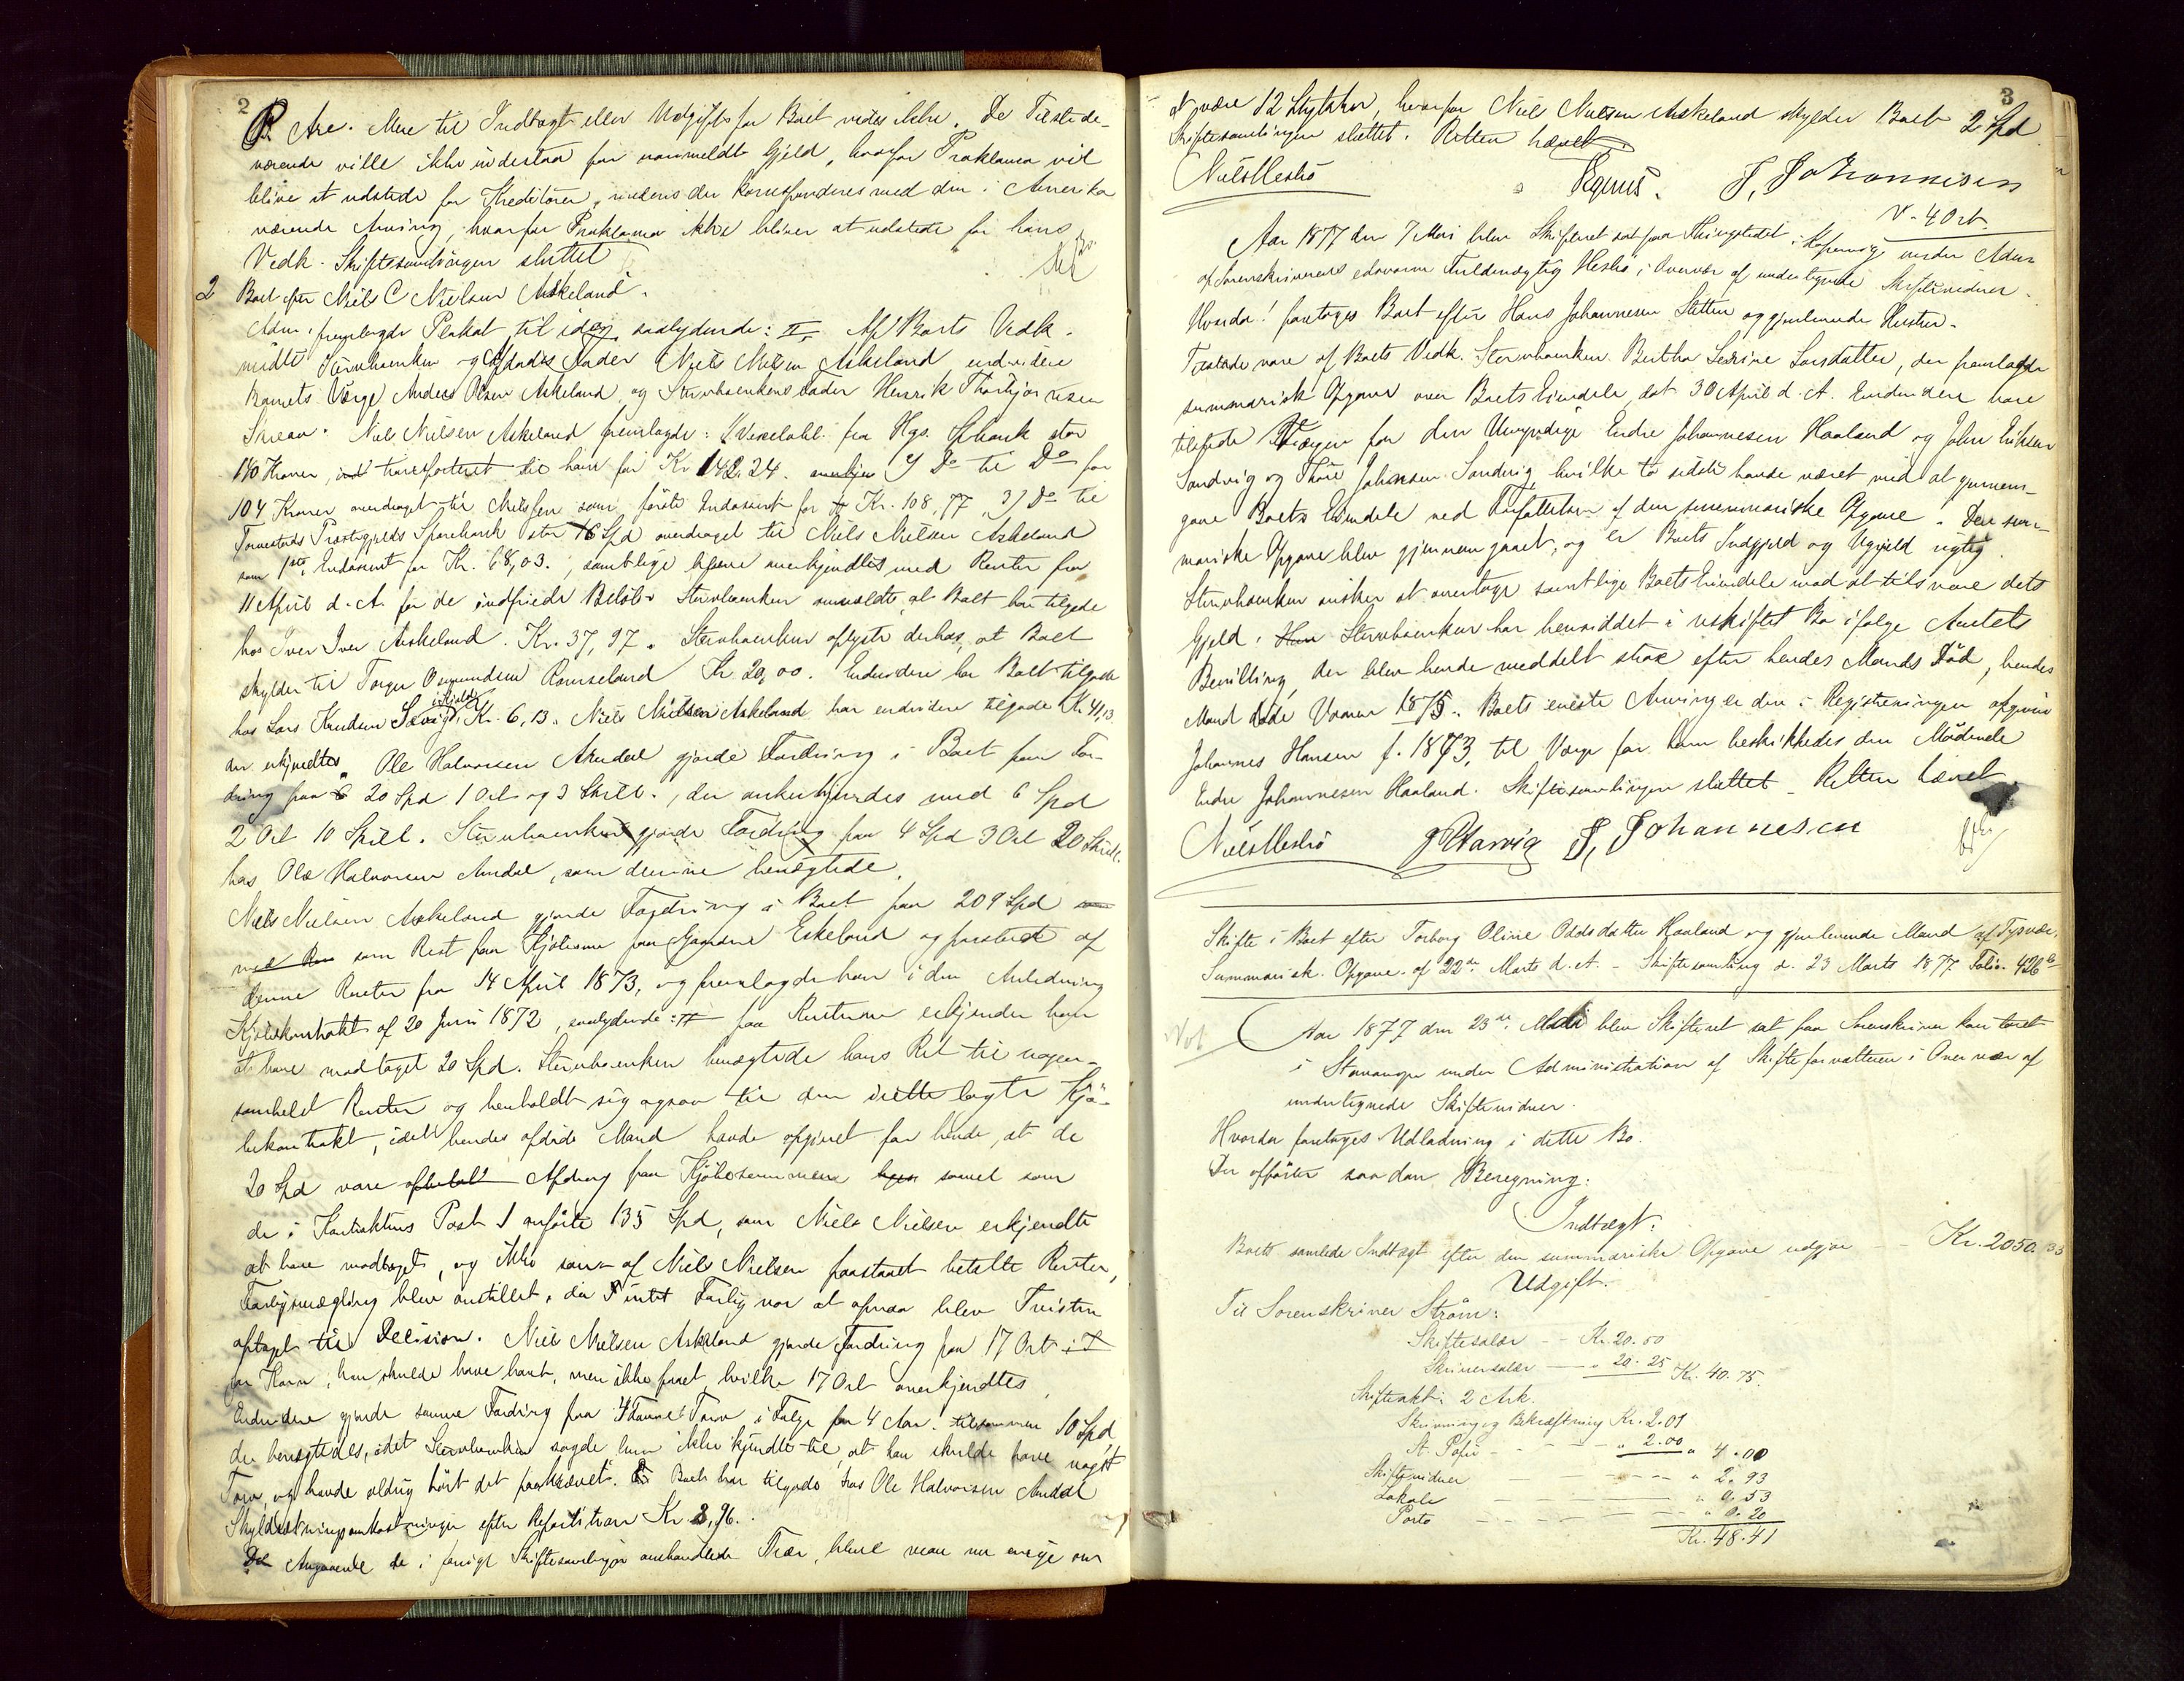 2
Are. Mere til Indtægt eller Udgift for Boet vides ikke. De Tilstede-
værende ville ikke indestaa for anmeldt Gjeld, hvorfor Proklama vil
blive at udstede for Kreditorer, medens der korresponderes med den i Amerika
værende Arving, hvorfor Proklama ikke bliver at udstede for hans
Vedk. Skiftesamlingen sluttet
2 Boet efter Niels C Nielsen Askeland.
Adm. fremlagde Plakat til idag saalydende: II, Af Boets Vedk.
mødte Stervboenken og Afdødes Fader Niels Nielsen Askeland endvidere
Barnets Værge Anders Olsen Askeland og Stervboenkens Fader Henrik Thorbjørnsen
Niels Nielsen Askeland fremlagde: 1/ Vexelobl. fra Hgs. Spbank stor
140 Kroner, transporteret til ham for Kr 142.24. 2/ Do til Do for
104 Kroner overdraget til Nielsen som første Endossent for Kr. 108,77, 3) Do til
Torvestads Præstegjelds Sparebank stor 16 Spd overdraget til Niels Nielsen Askeland
som 1ste Endossent for Kr. 68,03., samtlige bleve anerkjendte med Renter fra
11 April d. A. for de indfriede Beløb. Stervboenken anmeldte, at Boet har tilgode
hos Iver Iver Askeland. Kr. 37,97. Stervboenken oplyste derhos, at Boet
skylder til Torger Osmundsen Kr 20,00. Endvidere har Boet tilgode
hos Lars Knudsen Kr. 6,13. Niels Nielsen Askeland har endvidere tilgode Kr. 41,13
der erkjendtes. Ole Halvorsen Amdal gjorde Fordring i Boet paa For-
dring paa 20 Spd 1 Ort og 3 Skill., der anerkjendes med 6 Spd
2 Ort 10 Skill. Stervboenken gjorde Fordring paa 4 Spd 3 Ort 20 Skill.
hos Ole Halvorsen Amdal, som denne benægtede.
Niels Nielsen Askeland gjorde Fordring i Boet paa 209 Spd
som Rest paa Kjøbesum for Gaarden Eskeland og paastod af
denne Renter fra 14 April 1873, og fremlagde han i den Anledning
Kjøbekontrakt af 20 Juni 1872, saalydende: paa Renterne erkjender han
at have modtaget 20 Spd. Stervboenken benægtede hans Ret til nogen-
somhelst Renter og henholdt sig ogsaa til den irettelagte Kjø-
bekontrakt, idet hendes afdøde Mand havde opgivet for hende, at de
20 Spd vare Afdrag paa Kjøbesummen samt som
de i Kontraktens Post 1 anførte 135 Spd, som Niels Nielsen erkjendte
at have modtaget, og ikke som af Niels Nielsen paastaaet betalte Renter,
Forligsmægling blev anstillet, da intet Forlig var at opnaa blev Tvisten
optaget til Decision. Niels Nielsen Askeland gjorde Fordring paa 17 Ort
for Korn, han skulde have havt, men ikke faaet hvilke 17 Ort anerkjendtes.
Endvidere gjorde samme Fordring paa Torv i Følge for 4 Aar. tilsammen 10 Spd,
der benægtedes, idet Stervboenken sagde hun ikke kjendte til, at han skulde have nogét
Torv, og havde aldrig hørt det paakrævet. Boet har tilgode hos Ole Halvorsen Amdal
Skyldsætningsomkostninger efter Repartition Kr 3,96.
Angaaende de i forrige Skiftesamling omhandlede Trær, bleve man nu enige om
3
at være 12 Stykker, hvorfor Niels Nielsen Askeland skylder Boet 2 Spd
Skiftesamlingen sluttet. Retten hævet
Niels Meslø J, Johannesen
V - 4 Ort.
Aar 1877 den 7 Mai blev Skifteret sat paa Thingstedet i Kopervig under Adm
af Sorenskriverens edsvorne Fuldmægtig Meslø i Overvær af undertegnede Skiftevidner.
Hvorda! foretoges Boet efter Hans Johannesen Sletten og gjenlevende Hustru.
Tilstede vare af Boets Vedk. Stervboenken Bertha Serine Larsdatter, der fremlagde
summarisk Opgave over Boets Eiendele, dat 30 April d. A. Endvidere vare
tilstede Værgen for den Umyndige Endre Johannesen Haaland og John Eriksen
Sandvig og Thore Johnsen Sandvig, hvilke to sidste havde været med at gjennem-
gaae Boets Eiendele ved Forfattelsen af den summariske Opgave. Den sum-
mariske Opgave blev gjennemgaaet, og er Boets Indgjeld og Udgjeld rigtig.
Stervboenken ønsker at overtage samtlige Boets Eiendele mod at tilsvare dets
Gjeld. Stervboenken har hensiddet i uskiftet Bo ifølge Amtets
Bevilling, der blev hende meddelt strax efter hendes Mands Død, hendes
Mand døde Vaaren 1875. Boets eneste Arving er den i Registreringen opgivne
Johannes Hansen f. 1873, til Værge for ham beskikkedes den Mødende
Endre Johannesen Haaland. Skiftesamlingen sluttet - Retten hævet.
Niels Meslø J, Johannesen
Skifte i Boet efter Torborg Oline Oddsdatter Haaland og gjenlevende Mand af Tysvær.
Summarisk Opgave af 22de Marts d. A. - Skiftesamling d. 23 Marts 1877 Folio 426b
Not
Aar 1877 den 23de Mai blev Skifteret sat paa Sorenskriverkontoret
i Stavanger under Administration af Skifteforvalteren i Overvær af
undertegnede Skiftevidner.
Hvorda foretoges Udlodning i dette Bo.
Der opførtes saadan Beregning:
Indtægt:
Boets samlede Indtægt efter den summariske Opgave udgjør - Kr. 2050.33
Udgift.
Til Sorenskriver Strøm:
Skiftesalær - - Kr. 20.50
Skriversalær - " 20.25 Kr. 40.75.
Skifteakt: 2 Ark.
Skrivning og Bekræftning Kr. 2.01
St. Papir - - - - " 2.00 " 4.00
Skiftevidner - - - - " 2.93
Lokale - - - - " 0.53
Porto - - - - " 0.20
Kr. 48.41